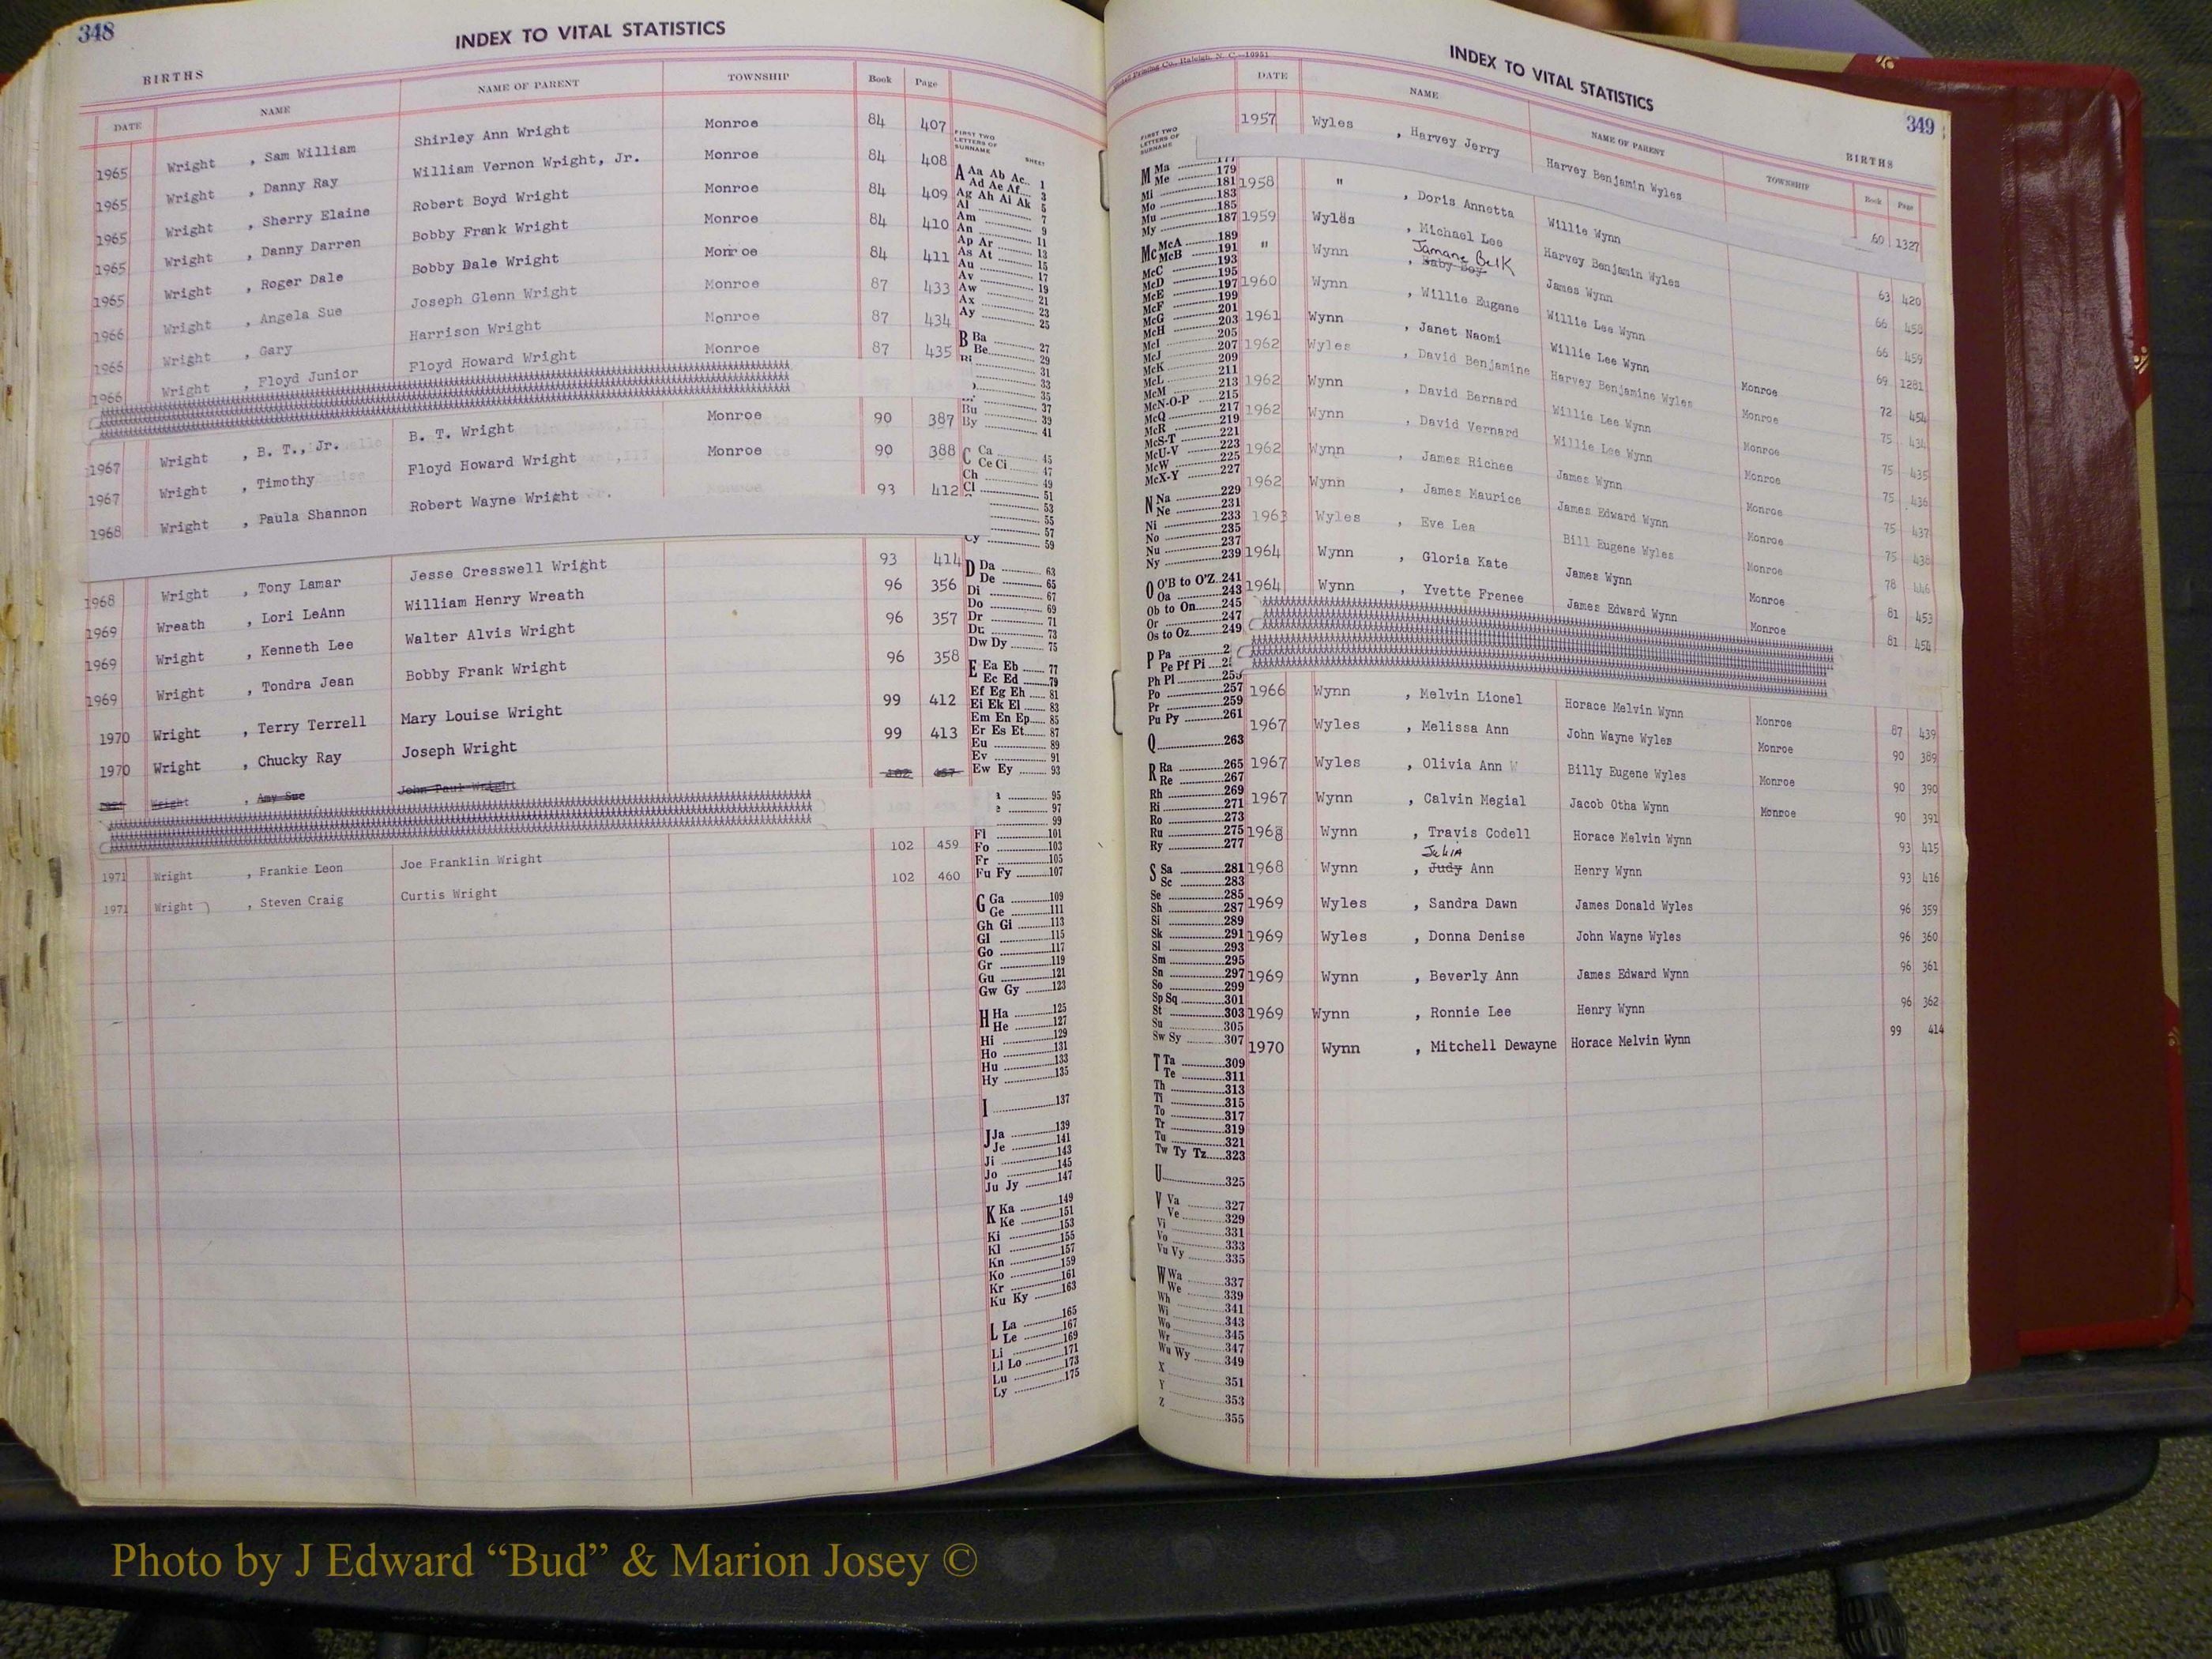 348
INDEX TO VITAL STATISTICS
BIRTHS
DATE NAME NAME OF PARENT TOWNSHIP Book Page
1965 Wright , Sam William Shirley Ann Wright Monroe 84 407
1965 Wright , Danny Ray William Vernon Wright, Jr. Monroe 84 408
1965 Wright , Sherry Elaine Robert Boyd Wright Monroe 84 409
1965 Wright , Danny Darren Bobby Frank Wright Monroe 84 410
1965 Wright , Roger Dale Bobby Dale Wright Monroe 84 411
1966 Wright , Angela Sue Joseph Glenn Wright Monroe 87 433
1966 Wright , Gary Harrison Wright Monroe 87 434
1966 Wright , Floyd Junior Floyd Howard Wright Monroe 87 435
1967 Wright , B. T., Jr. B. T. Wright Monroe 90 387
1967 Wright , Timothy Floyd Howard Wright Monroe 90 388
1968 Wright , Paula Shannon Robert Wayne Wright 93 412
1968 Wright , Tony Lamar Jesse Cresswell Wright 93 414
1969 Wreath , Lori LeAnn William Henry Wreath 96 356
1969 Wright , Kenneth Lee Walter Alvis Wright 96 357
1969 Wright , Tondra Jean Bobby Frank Wright 96 358
1970 Wright , Terry Terrell Mary Louise Wright 99 412
1970 Wright , Chucky Ray Joseph Wright 99 413
Wright , Amy Sue John Paul Wright 102 457
1971 Wright , Frankie Leon Joe Franklin Wright 102 459
1971 Wright ) , Steven Craig Curtis Wright 102 460
FIRST TWO
LETTERS OF
SURNAME SHEET
A Aa Ab Ac.. 1
Ad Ae Af 3
Ag Ah Ai Ak 5
Al 7
Am 9
An 11
Ap Ar 13
As At 15
Au 17
Av 19
Aw 21
Ax 23
Ay 25
B Ba 27
Be 29
31
33
35
Bu 37
By 39
41
C Ca 45
Ce Ci 47
Ch 49
Cl 51
53
55
57
Cy 59
D Da 63
De 65
Di 69
Do 71
Dr 73
Du
Dw Dy 75
E Ea Eb 77
Ec Ed 79
Ef Eg Eh 81
Ei Ek El 83
Em En Ep 85
Er Es Et 87
Eu 89
Ev 91
Ew Ey 93
95
97
99
Fl 101
Fo 103
Fr 105
Fu Fy 107
G Ga 109
Ge 111
Gh Gi 113
Gl 115
Go 117
Gr 119
Gu 121
Gw Gy 123
H Ha 125
He 127
Hi 129
Ho 131
Hu 133
Hy 135
I 137
J Ja 139
Je 141
Ji 143
Jo 145
Ju Jy 147
K Ka 149
Ke 151
Ki 153
Kl 155
Kn 157
Ko 159
Kr 161
Ku Ky 163
L La 165
Le 167
Li 169
Ll Lo 171
Lu 173
Ly 175
Printing Co., Raleigh, N. C.—10951
INDEX TO VITAL STATISTICS
349
BIRTHS
DATE NAME NAME OF PARENT TOWNSHIP Book Page
1957 Wyles , Harvey Jerry Harvey Benjamin Wyles 60 1327
1958 " , Doris Annetta Willie Wynn 63 420
1959 Wyles , Michael Lee Harvey Benjamin Wyles 66 458
" Wynn , Baby Boy Jamane Belk James Wynn 66 459
1960 Wynn , Willie Eugene Willie Lee Wynn 69 1281
1961 Wynn , Janet Naomi Willie Lee Wynn Monroe 72 454
1962 Wyles , David Benjamine Harvey Benjamine Wyles Monroe 75 434
1962 Wynn , David Bernard Willie Lee Wynn Monroe 75 435
1962 Wynn , David Vernard Willie Lee Wynn Monroe 75 436
1962 Wynn , James Richee James Wynn Monroe 75 437
1962 Wynn , James Maurice James Edward Wynn Monroe 75 438
1963 Wyles , Eve Lea Bill Eugene Wyles Monroe 78 446
1964 Wynn , Gloria Kate James Wynn Monroe 81 453
1964 Wynn , Yvette Frenee James Edward Wynn Monroe 81 454
1966 Wynn , Melvin Lionel Horace Melvin Wynn Monroe 87 439
1967 Wyles , Melissa Ann John Wayne Wyles Monroe 90 389
1967 Wyles , Olivia Ann Billy Eugene Wyles Monroe 90 390
1967 Wynn , Calvin Megial Jacob Otha Wynn Monroe 90 391
1968 Wynn , Travis Codell Horace Melvin Wynn 93 415
1968 Wynn , Judy Julia Ann Henry Wynn 93 416
1969 Wyles , Sandra Dawn James Donald Wyles 96 359
1969 Wyles , Donna Denise John Wayne Wyles 96 360
1969 Wynn , Beverly Ann James Edward Wynn 96 361
1969 Wynn , Ronnie Lee Henry Wynn 96 362
1970 Wynn , Mitchell Dewayne Horace Melvin Wynn 99 414
FIRST TWO
LETTERS OF
SURNAME
M Ma 177
Me 179
Mi 181
Mo 183
Mu 185
My 187
Mc McA 189
McB 191
McC 193
McD 195
McE 197
McF 199
McG 201
McH 203
McI 205
McJ 207
McK 209
McL 211
McM 213
McN-O-P 215
McQ 217
McR 219
McS-T 221
McU-V 223
McW 225
McX-Y 227
N Na 229
Ne 231
Ni 233
No 235
Nu 237
Ny 239
O O'B to O'Z 241
Oa 243
Ob to On 245
Or 247
Os to Oz 249
P Pa
Pe Pf Pi
Ph Pl 255
Po 257
Pr 259
Pu Py 261
Q 263
R Ra 265
Re 267
Rh 269
Ri 271
Ro 273
Ru 275
Ry 277
S Sa 281
Sc 283
Se 285
Sh 287
Si 289
Sk 291
Sl 293
Sm 295
Sn 297
So 299
Sp Sq 301
St 303
Su 305
Sw Sy 307
T Ta 309
Te 311
Th 313
Ti 315
To 317
Tr 319
Tu 321
Tw Ty Tz 323
U 325
V Va 327
Ve 329
Vi 331
Vo 333
Vu Vy 335
W Wa 337
We 339
Wh 341
Wi 343
Wo 345
Wr 347
Wu Wy 349
X 351
Y 353
Z 355
Photo by J Edward “Bud” & Marion Josey ©